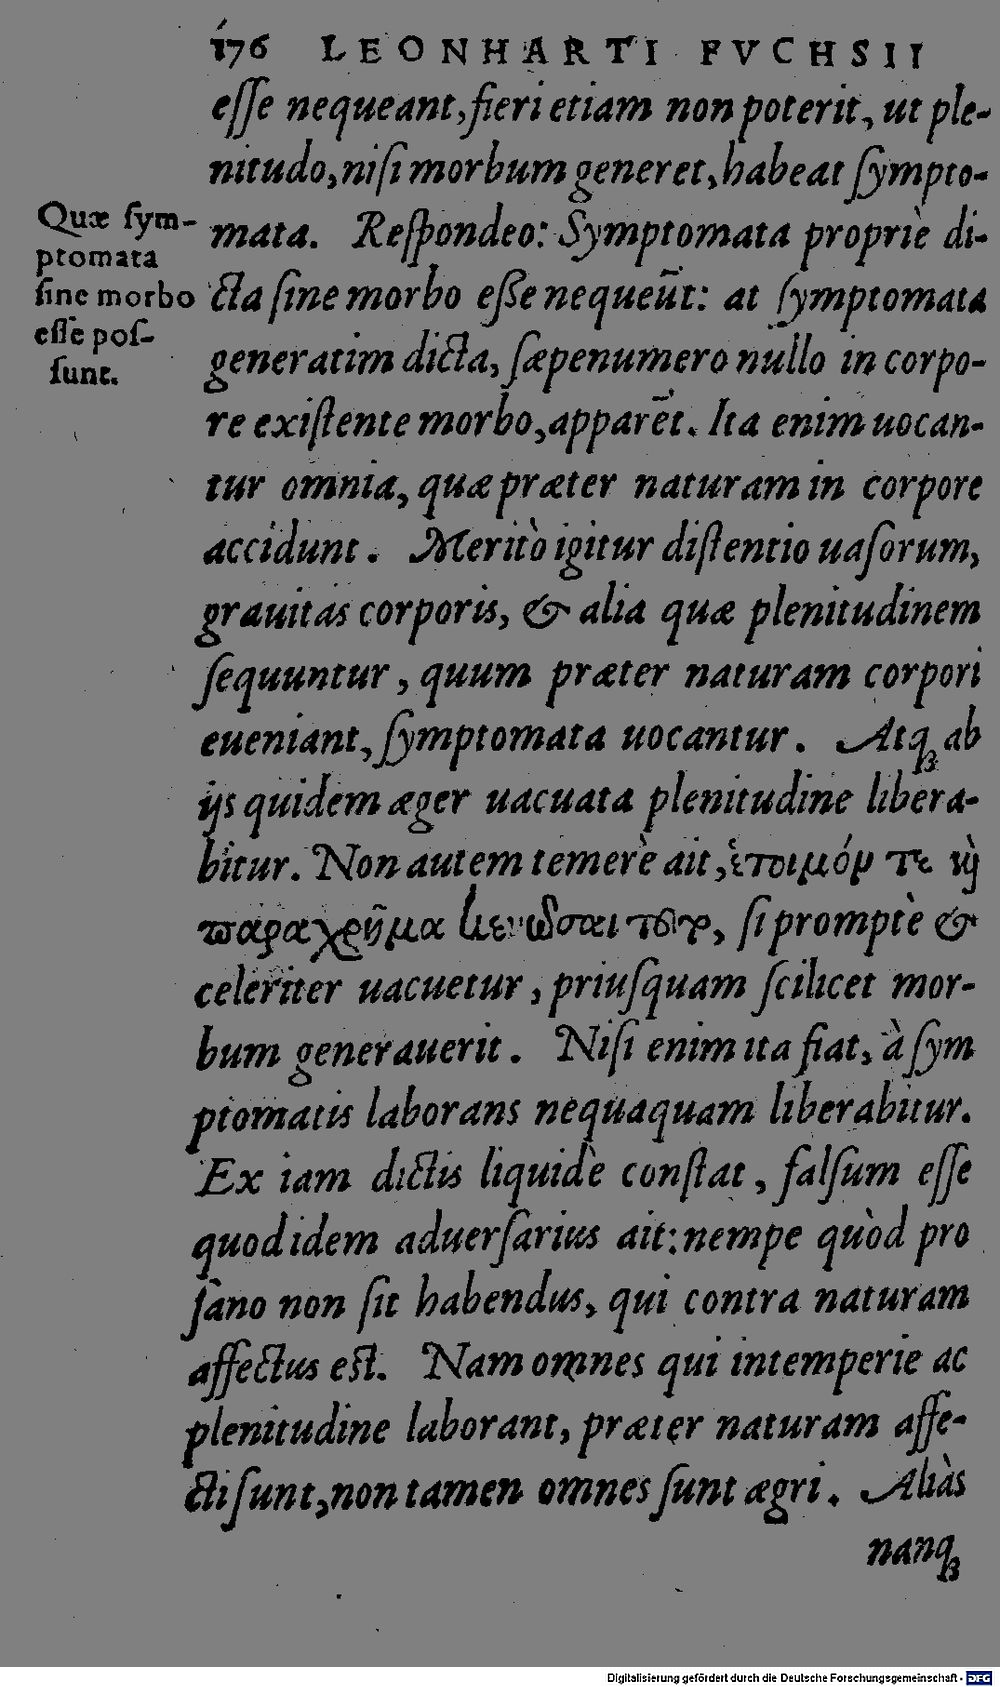 176 LEONHARTI FVCHSII
esse nequeant, fieri etiam non poterit, ut ple-
nitudo, nisi morbum generet, habeat sympto-
mata. Respondeo: Symptomata propriè di-
cta sine morbo esse nequeũt: at symptomata
generatim dicta, sæpenumero nullo in corpo-
re existente morbo, apparẽt. Ita enim uocan-
tur omnia, quæ præter naturam in corpore
accidunt. Meritò igitur distentio uasorum,
grauitas corporis, & alia quæ plenitudinem
sequuntur, quum præter naturam corpori
eueniant, symptomata uocantur. Atq́ꝫ ab
ijs quidem æger uacuata plenitudine libera-
bitur. Non autem temerè ait, ἑτοιμόν τε ϗ̀
παραχρῆμα κενῶσαι τὸν, si promptè &
celeriter uacuetur, priusquam scilicet mor-
bum generauerit. Nisi enim ita fiat, à sym
ptomatis laborans nequaquam liberabitur.
Ex iam dictis liquidè constat, falsum esse
quod idem aduersarius ait: nempe quòd pro
sano non sit habendus, qui contra naturam
affectus est. Nam omnes qui intemperie ac
plenitudine laborant, præter naturam affe-
cti sunt, non tamen omnes sunt ægri. Aliàs
nanqꝫ
Quæ sym-
ptomata
sine morbo
esse pos-
sunt.
Digitalisierung gefördert durch die Deutsche Forschungsgemeinschaft - DFG